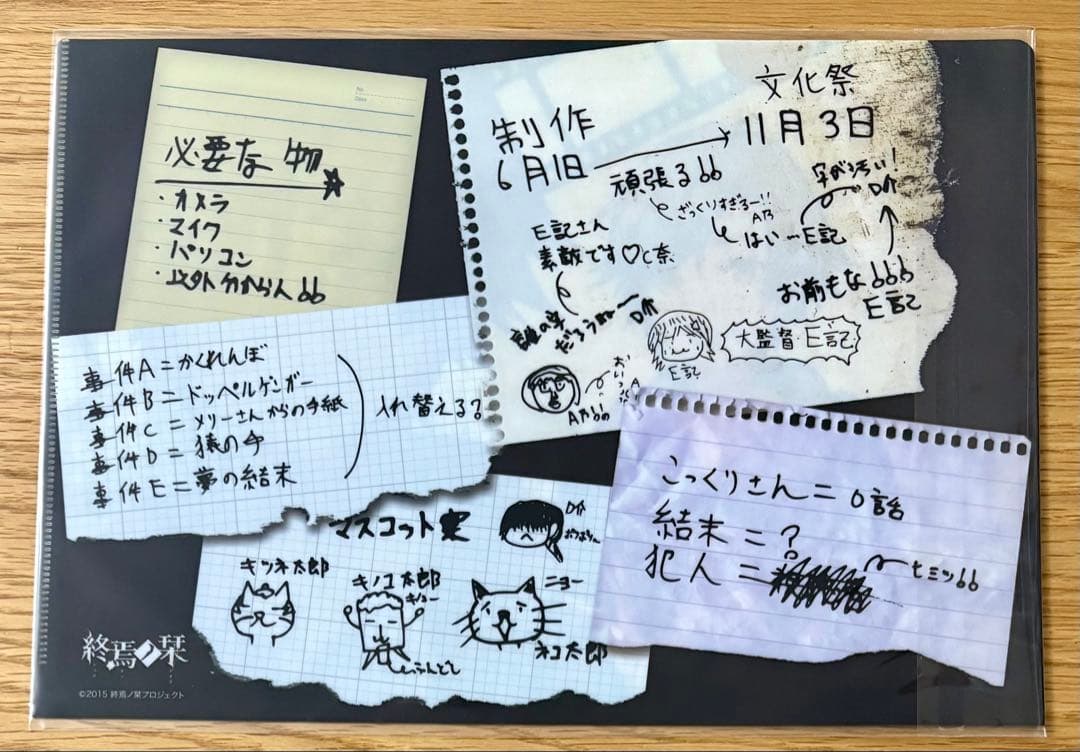 No.
Date
必要な物
・カメラ
・マイク
・パソコン
・以外分からん66
文化祭
制作
6月1日
11月3日
頑張る66
ざっくりすぎるー!!
A乃
はい…E記
字が汚い!
D介
お前もな666
E記
E記さん
素敵です♡C奈
誰の字
だろうねー
D介
E記
大監督E記
おいっ
A乃66
事件A=かくれんぼ
事件B=ドッペルゲンガー
事件C=メリーさんからの手紙
事件D=猿の手
事件E=夢の結末
入れ替える?
こっくりさん=0話
結末=?
犯人=
ヒミツ66
マスコット案
D介
キツネ太郎
キノコ太郎
キノコー
ふんどし
ニョー
ネコ太郎
終焉ノ栞
©2015 終焉ノ栞プロジェクト